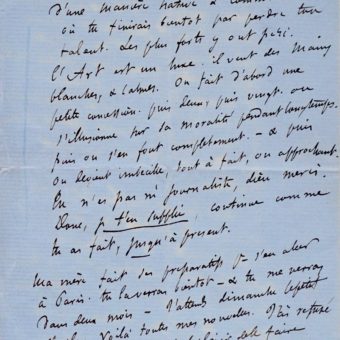 d'une manière hâtive & comm
où tu finirais bientôt par perdre ton
talent. Les plus forts y ont péri.
L'Art est un luxe. il veut des mains
blanches, & calmes. On fait d'abord une
petite concession. puis deux, puis vingt. on
s'illusionne sur sa moralité pendant longtemps.
puis on s'en fout complètement. – & puis
on devient imbécile, tout à fait, ou approchant.
Tu n'es pas né journaliste, dieu merci.
Donc, je t'en supplie, continue comme
tu as fait, jusqu'à présent.
Ma mère fait ses préparatifs p. s'en aller
à Paris. tu la verras bientôt – & tu me verras
dans deux mois – J'attends dimanche
Voilà toutes mes nouvelles. J'ai refusé
de faire